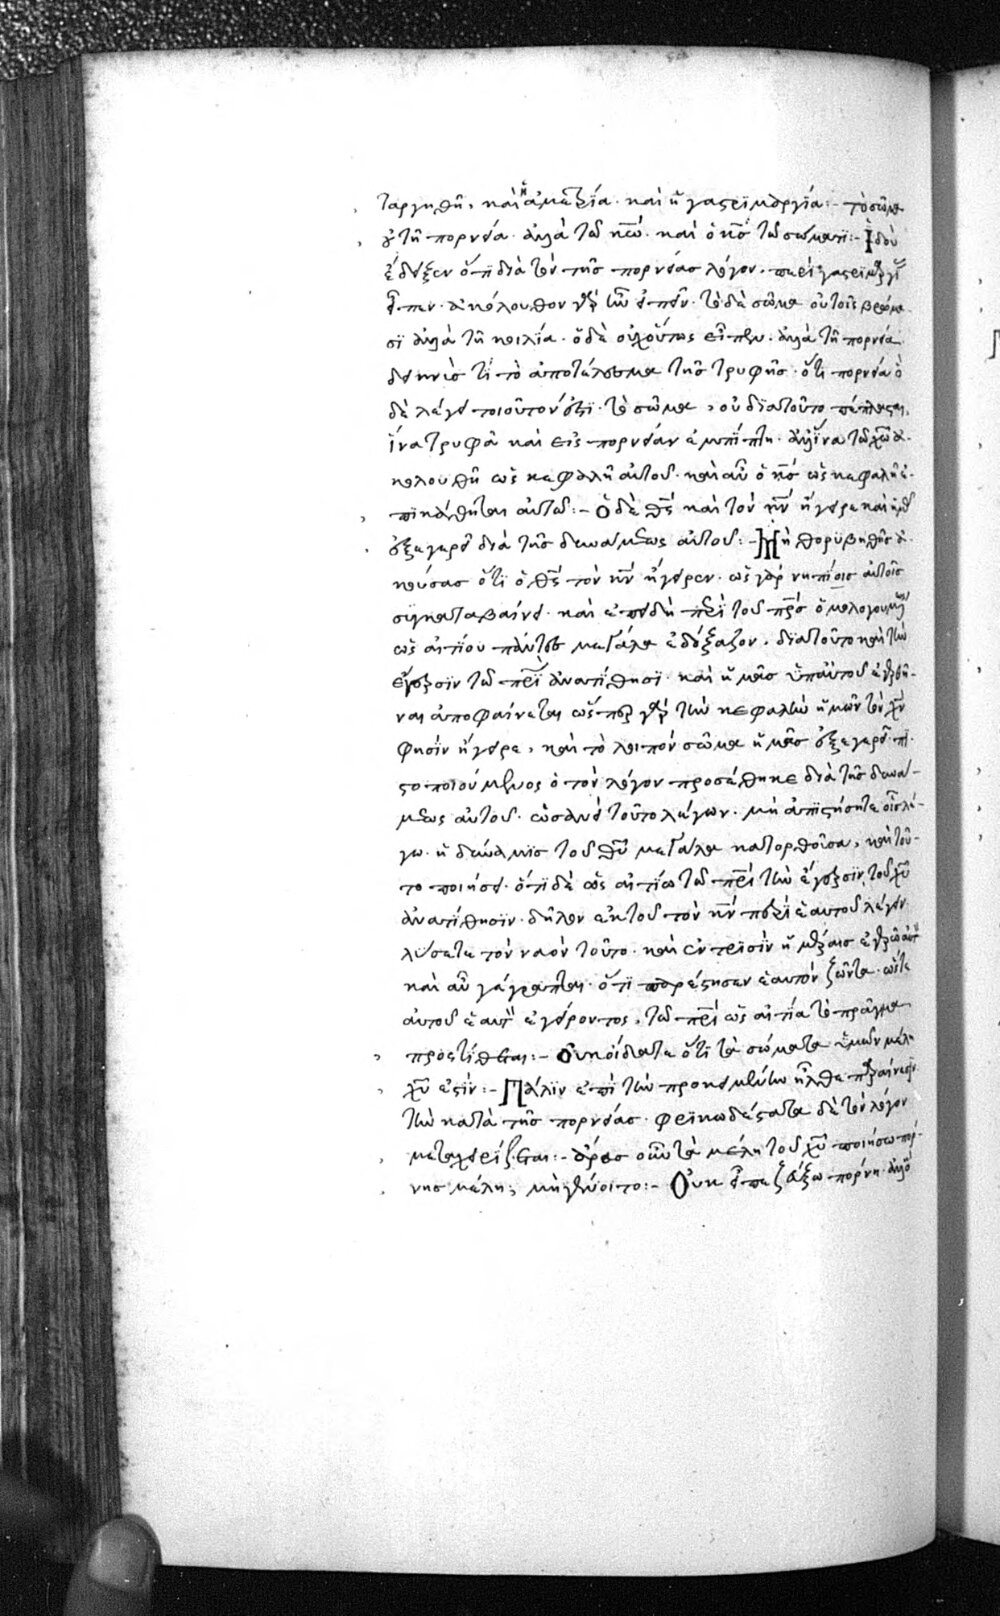 ταργηθῆ, καὶ ἡ ἀμετρία· καὶ ἡ γαστριμαργία:- τὸ σῶμα
οὐ τῆ πορνεία· ἀλλὰ τῶ κ̅ω̅· καὶ ὁ κ̅ς̅ τῶ σώματι:- Ἰδοὺ
ἔδειξεν ὅτι διὰ τὸν τῆς πορνείας λόγον, περὶ γαστριμαργί
εἶπεν· ἀκόλουθον γὰρ ἦν εἰπεῖν· τὸ δὲ σῶμα οὐ τοῖς βρώμα
σι ἀλλὰ τῆ κοιλία· ὁ δὲ οὐχ οὕτως εἶπεν· ἀλλὰ τῆ πορνεία
δεικνὺς τί τὸ ἀποτέλεσμα τῆς τρυφῆς· ὅτι πορνεία ὃ
δὲ λέγει τοιοῦτόν ἐστι· τὸ σῶμα, οὐ διατοῦτο πέπλασται,
ἵνα τρυφᾶ καὶ εἰς πορνείαν ἐμπίπτη· ἀλλ' ἵνα τῶ χ̅ω̅ ἀ-
κολουθῆ ὡς κεφαλῆ αὐτοῦ· καὶ αὖ ὁ κ̅ς̅ ὡς κεφαλὴ ἐ-
πικάθηται αὐτῶ:- Ὁ δὲ θ̅ς̅ καὶ τὸν κ̅ν̅ ἤγειρε καὶ ἡμᾶς
ἐξεγερεῖ διὰ τῆς δυνάμεως αὐτοῦ:- Μὴ θορυβηθῆς ἀ-
κούσας ὅτι ὁ θ̅ς̅ τὸν κ̅ν̅ ἤγειρεν· ὡς γὰρ νηπίοις αὐτοῖς
συγκαταβαίνει· καὶ ἐπειδὴ περὶ τοῦ π̅ρ̅ς̅ ὁμολογουμένως
ὡς αἰτίου πάντες μεγάλα ἐδόξαζον, διατοῦτο καὶ τὴν
ἔγερσιν τῶ π̅ρ̅ι̅ ἀνατίθησι· καὶ ἡμᾶς ὑπ' αὐτοῦ ἐγερθῆ-
ναι ἀποφαίνεται ὥσπερ γὰρ τὴν κεφαλὴν ἡμῶν τὸν χ̅ν̅
φησὶν ἤγειρε, καὶ τὸ λοιπὸν σῶμα ἡμᾶς ἐξεγερεῖ· πι-
στοποιούμενος δὲ τὸν λόγον προσέθηκε διὰ τῆς δυνά-
μεως αὐτοῦ· ὡσανεὶ τοῦτο λέγων· μὴ ἀπιστήσητε οἷς λέ-
γω· ἡ δύναμις τοῦ θ̅υ̅ μεγάλα κατορθοῦσα, καὶ τοῦ-
το ποιήσει· ὅτι δὲ ὡς αἰτίω τῶ π̅ρ̅ι̅ τὴν ἔγερσιν τοῦ χ̅υ̅
ἀνατίθησιν· δῆλον ἐκ τοῦ τὸν κ̅ν̅ περὶ ἑαυτοῦ λέγειν
λύσατε τὸν ναὸν τοῦτον· καὶ ἐν τρισὶν ἡμέραις ἐγερῶ αὐτόν
καὶ αὖ γέγραπται· ὅτι παρέστησεν ἑαυτὸν ζῶντα· ὥστε
αὐτοῦ ἑαυτὸν ἐγείροντος, τῶ π̅ρ̅ι̅ ὡς αἰτία τὸ πρᾶγμα
προστίθεται:- Οὐκ οἴδατε ὅτι τὰ σώματα ὑμῶν μέλη
χ̅υ̅ ἐστίν:- Πάλιν ἐπὶ τὴν προκειμένην ἦλθε παραίνεσιν
τὴν κατὰ τῆς πορνείας· φρικωδέστατα δὲ τὸν λόγον
μεταχειρίζεται:- ἄρας οὖν τὰ μέλη τοῦ χ̅υ̅ ποιήσω πόρ-
νης μέλη; μὴ γένοιτο:- Οὐκ εἶπε ζεύξω πόρνη· ἀλλὰ